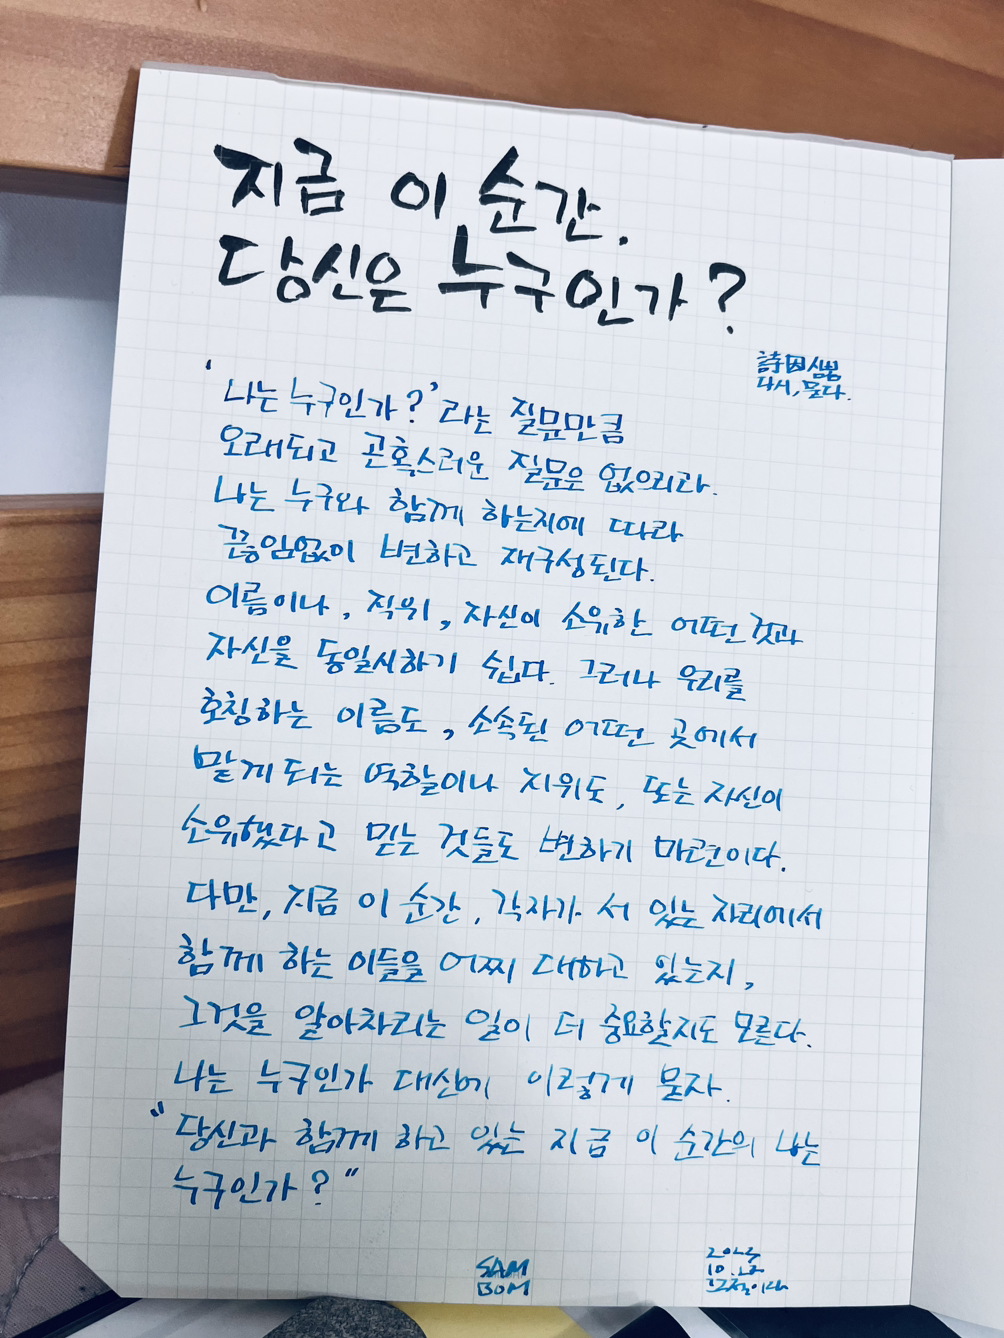 지금 이 순간.
당신은 누구인가?
詩因샘봄
다시, 묻다.
'나는 누구인가?'라는 질문만큼
오래되고 곤혹스러운 질문은 없으리라.
나는 누구와 함께 하는지에 따라
끊임없이 변하고 재구성된다.
이름이나, 직위, 자신이 소유한 어떤 것과
자신을 동일시하기 쉽다. 그러나 우리를
호칭하는 이름도, 소속된 어떤 곳에서
맡게 되는 역할이나 지위도, 또는 자신이
소유했다고 믿는 것들도 변하기 마련이다.
다만, 지금 이 순간, 각자가 서 있는 자리에서
함께 하는 이들을 어찌 대하고 있는지,
그것을 알아차리는 일이 더 중요할지도 모른다.
나는 누구인가 대신에 이렇게 묻자.
"당신과 함께 하고 있는 지금 이 순간의 나는
누구인가?"
SAM
BOM
10.